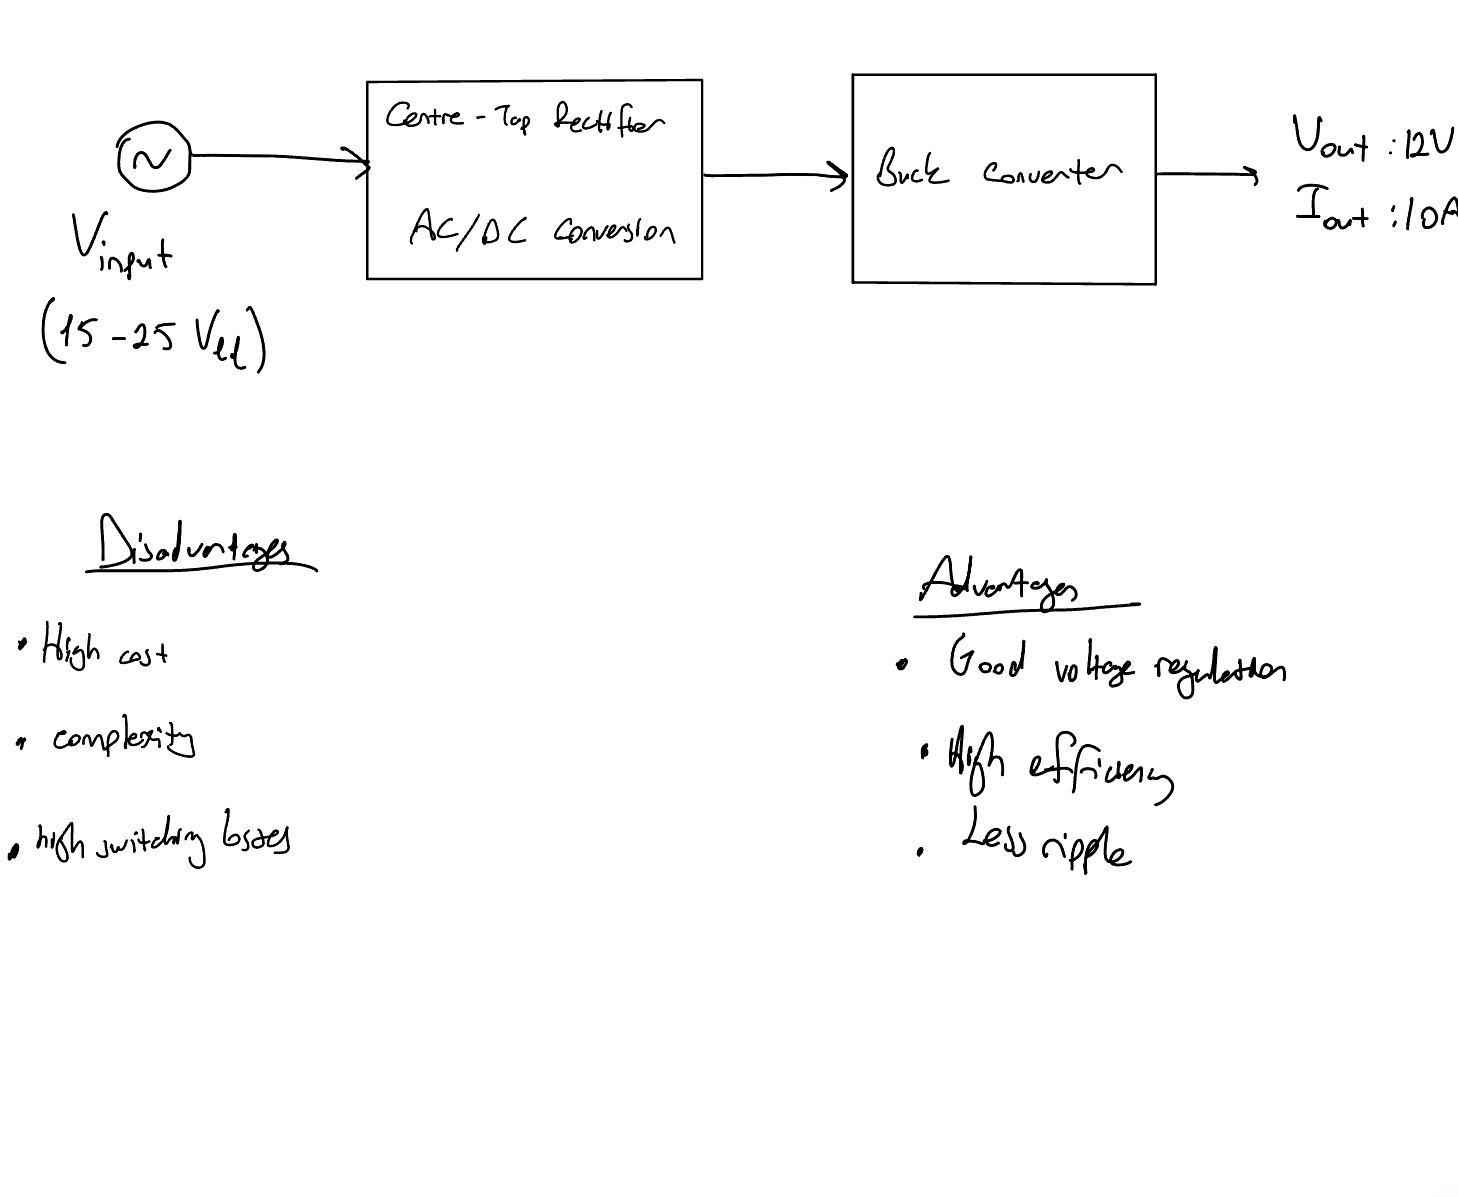 Centre-Tap Rectifier
AC/DC Conversion
Buck Converter
Vout : 12V
Iout : 10A
~
Vinput
(15-25 Vll)
Disadvantages
• High cost
• complexity
• high switching losses
Advantages
• Good voltage regulation
• High efficiency
• Less ripple